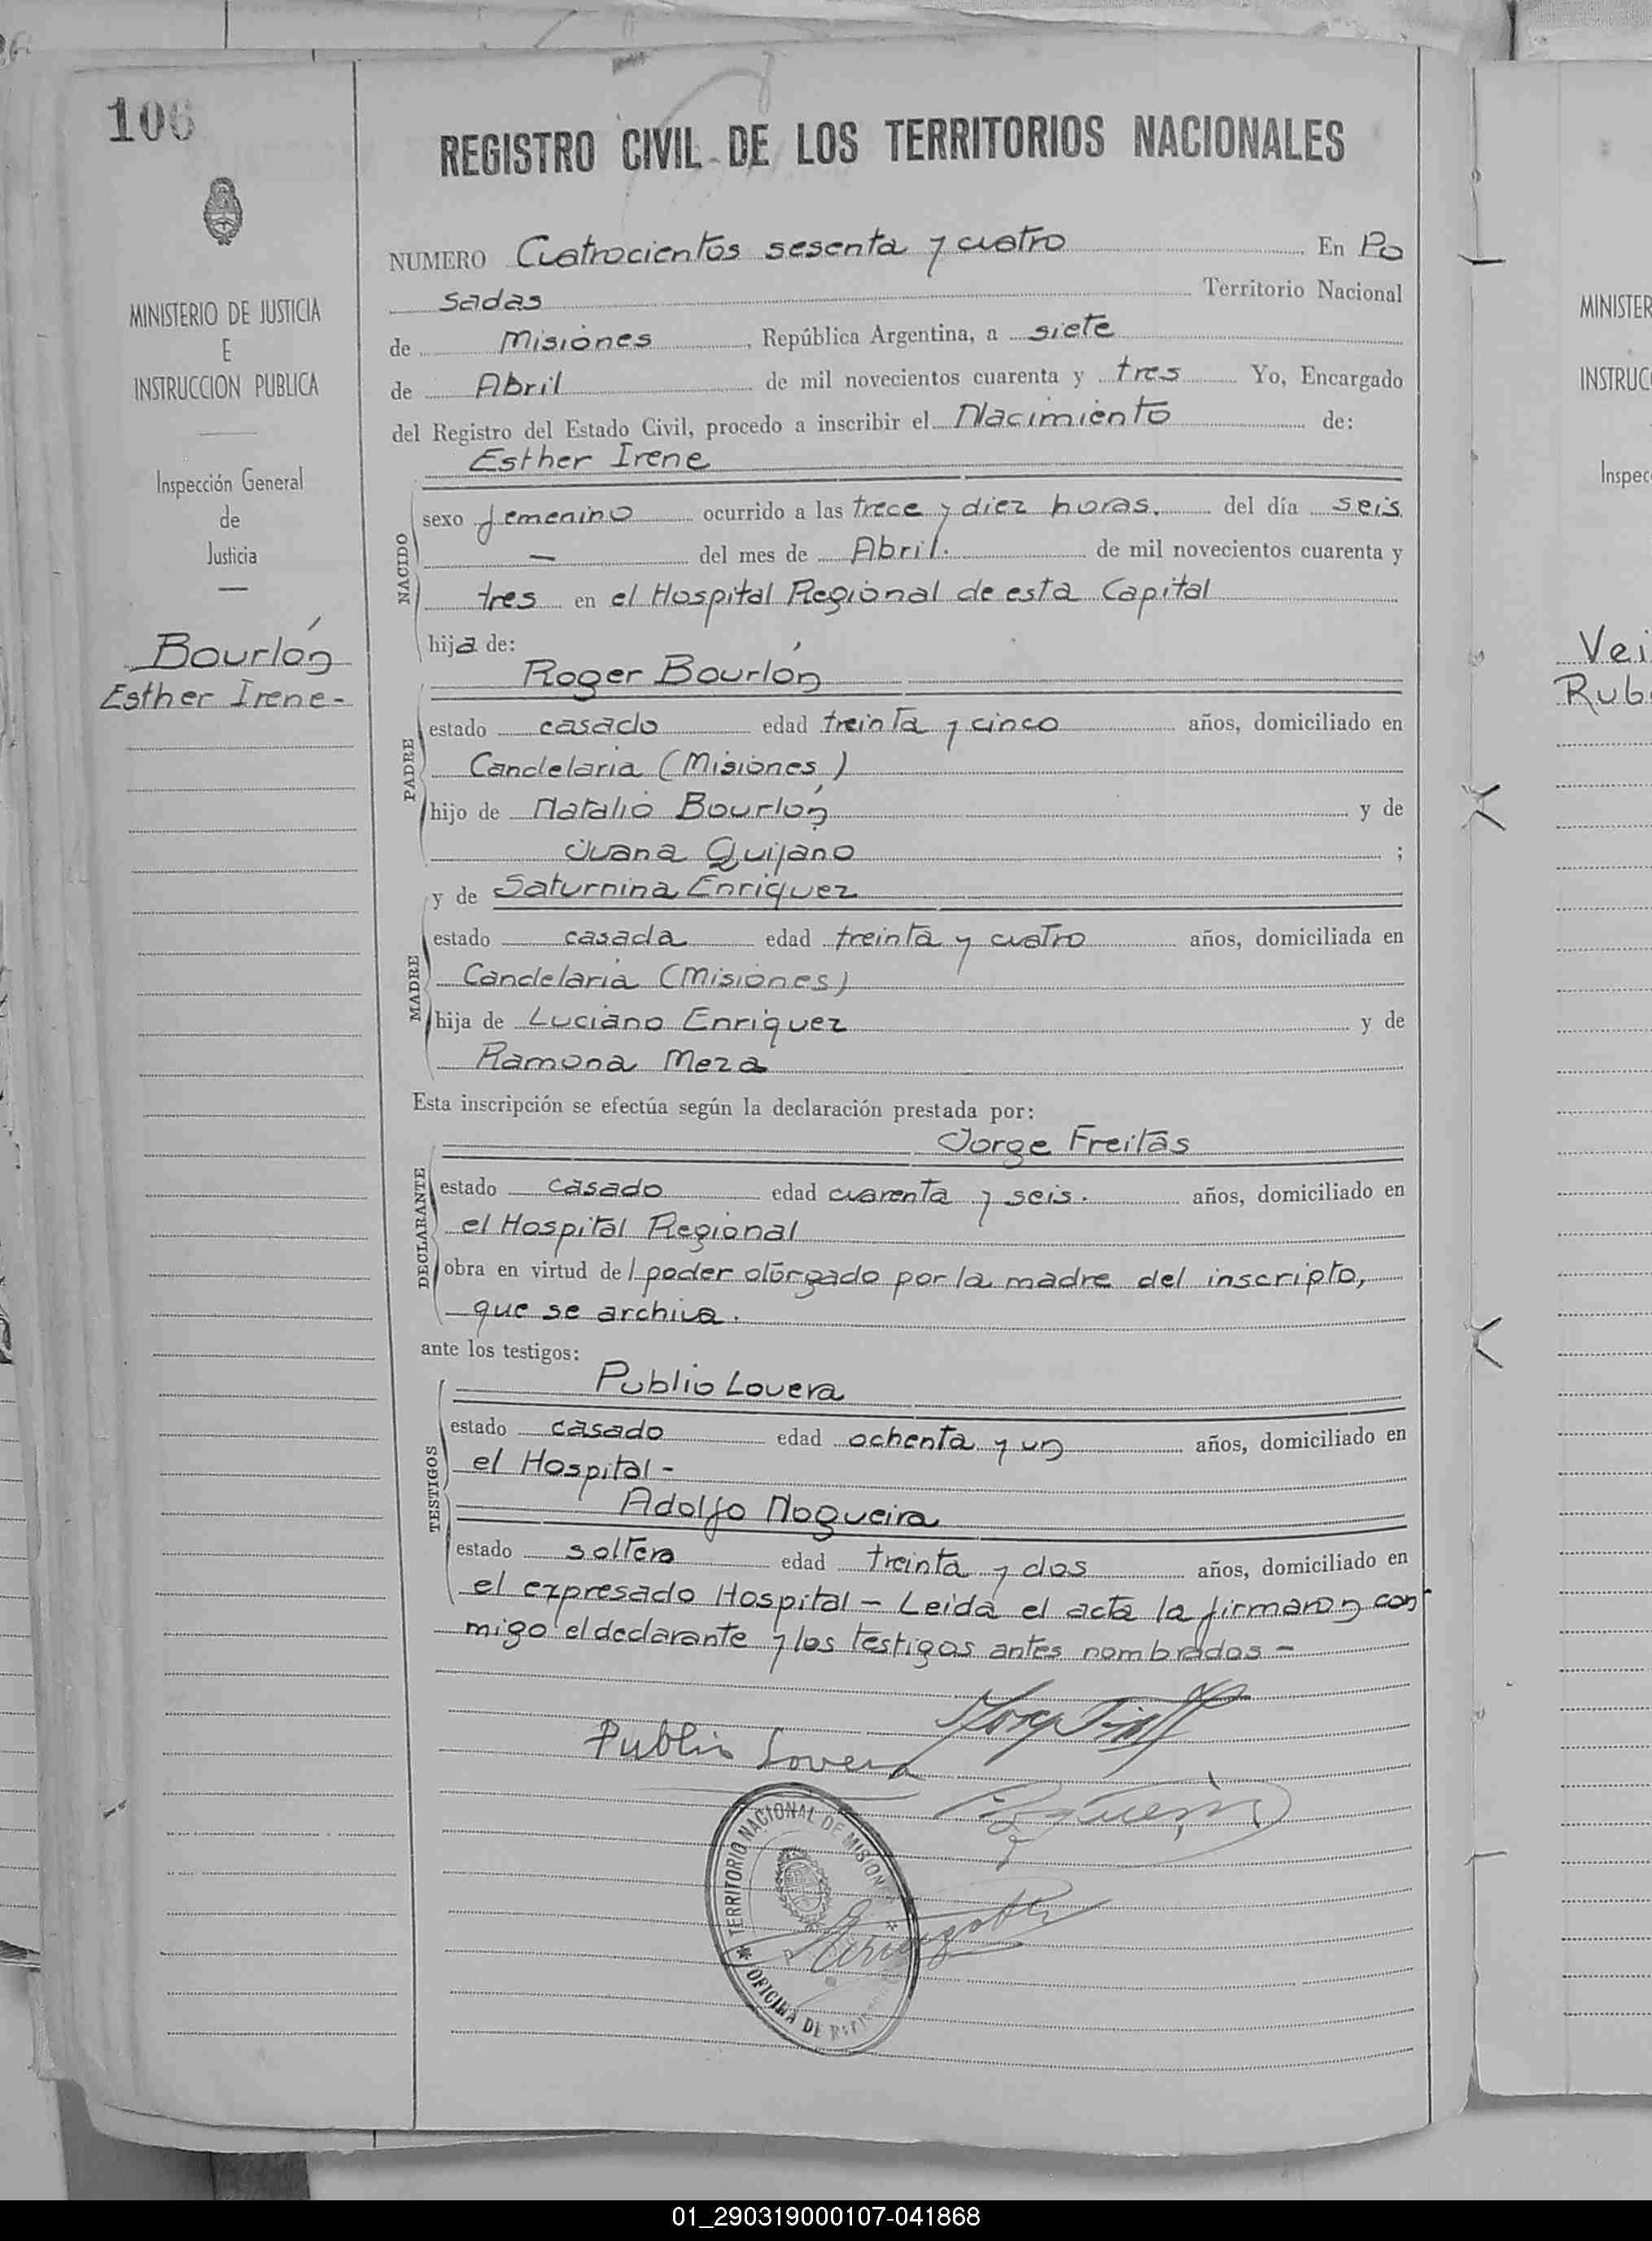 106
REGISTRO CIVIL DE LOS TERRITORIOS NACIONALES
MINISTERIO DE JUSTICIA
E
INSTRUCCION PUBLICA
Inspección General
de
Justicia
Bourlón
Esther Irene-
NUMERO Cuatrocientos sesenta y cuatro En Po
sadas Territorio Nacional
de Misiones, República Argentina, a siete
de Abril de mil novecientos cuarenta y tres Yo, Encargado
del Registro del Estado Civil, procedo a inscribir el Nacimiento de:
Esther Irene
NACIDO
sexo femenino ocurrido a las trece y diez horas. del día seis
— del mes de Abril. de mil novecientos cuarenta y
tres en el Hospital Regional de esta Capital
hija de:
Roger Bourlón
PADRE
estado casado edad treinta y cinco años, domiciliado en
Candelaria (Misiones)
hijo de Natalio Bourlón y de
Juana Quijano ;
y de Saturnina Enriquez
MADRE
estado casada edad treinta y cuatro años, domiciliada en
Candelaria (Misiones)
hija de Luciano Enriquez y de
Ramona Meza
Esta inscripción se efectúa según la declaración prestada por:
Jorge Freitas
DECLARANTE
estado casado edad cuarenta y seis. años, domiciliado en
el Hospital Regional
obra en virtud del poder otorgado por la madre del inscripto,
que se archiva.
ante los testigos:
Publio Lovera
TESTIGOS
estado casado edad ochenta y un años, domiciliado en
el Hospital-
Adolfo Nogueira
estado soltero edad treinta y dos años, domiciliado en
el expresado Hospital - Leida el acta la firmaron con
migo el declarante y los testigos antes nombrados -
Publio Lovera
TERRITORIO NACIONAL DE MISIONES
OFICINA DE
MINISTER
INSTRUC
Inspec
Vei
Rub
01_290319000107-041868